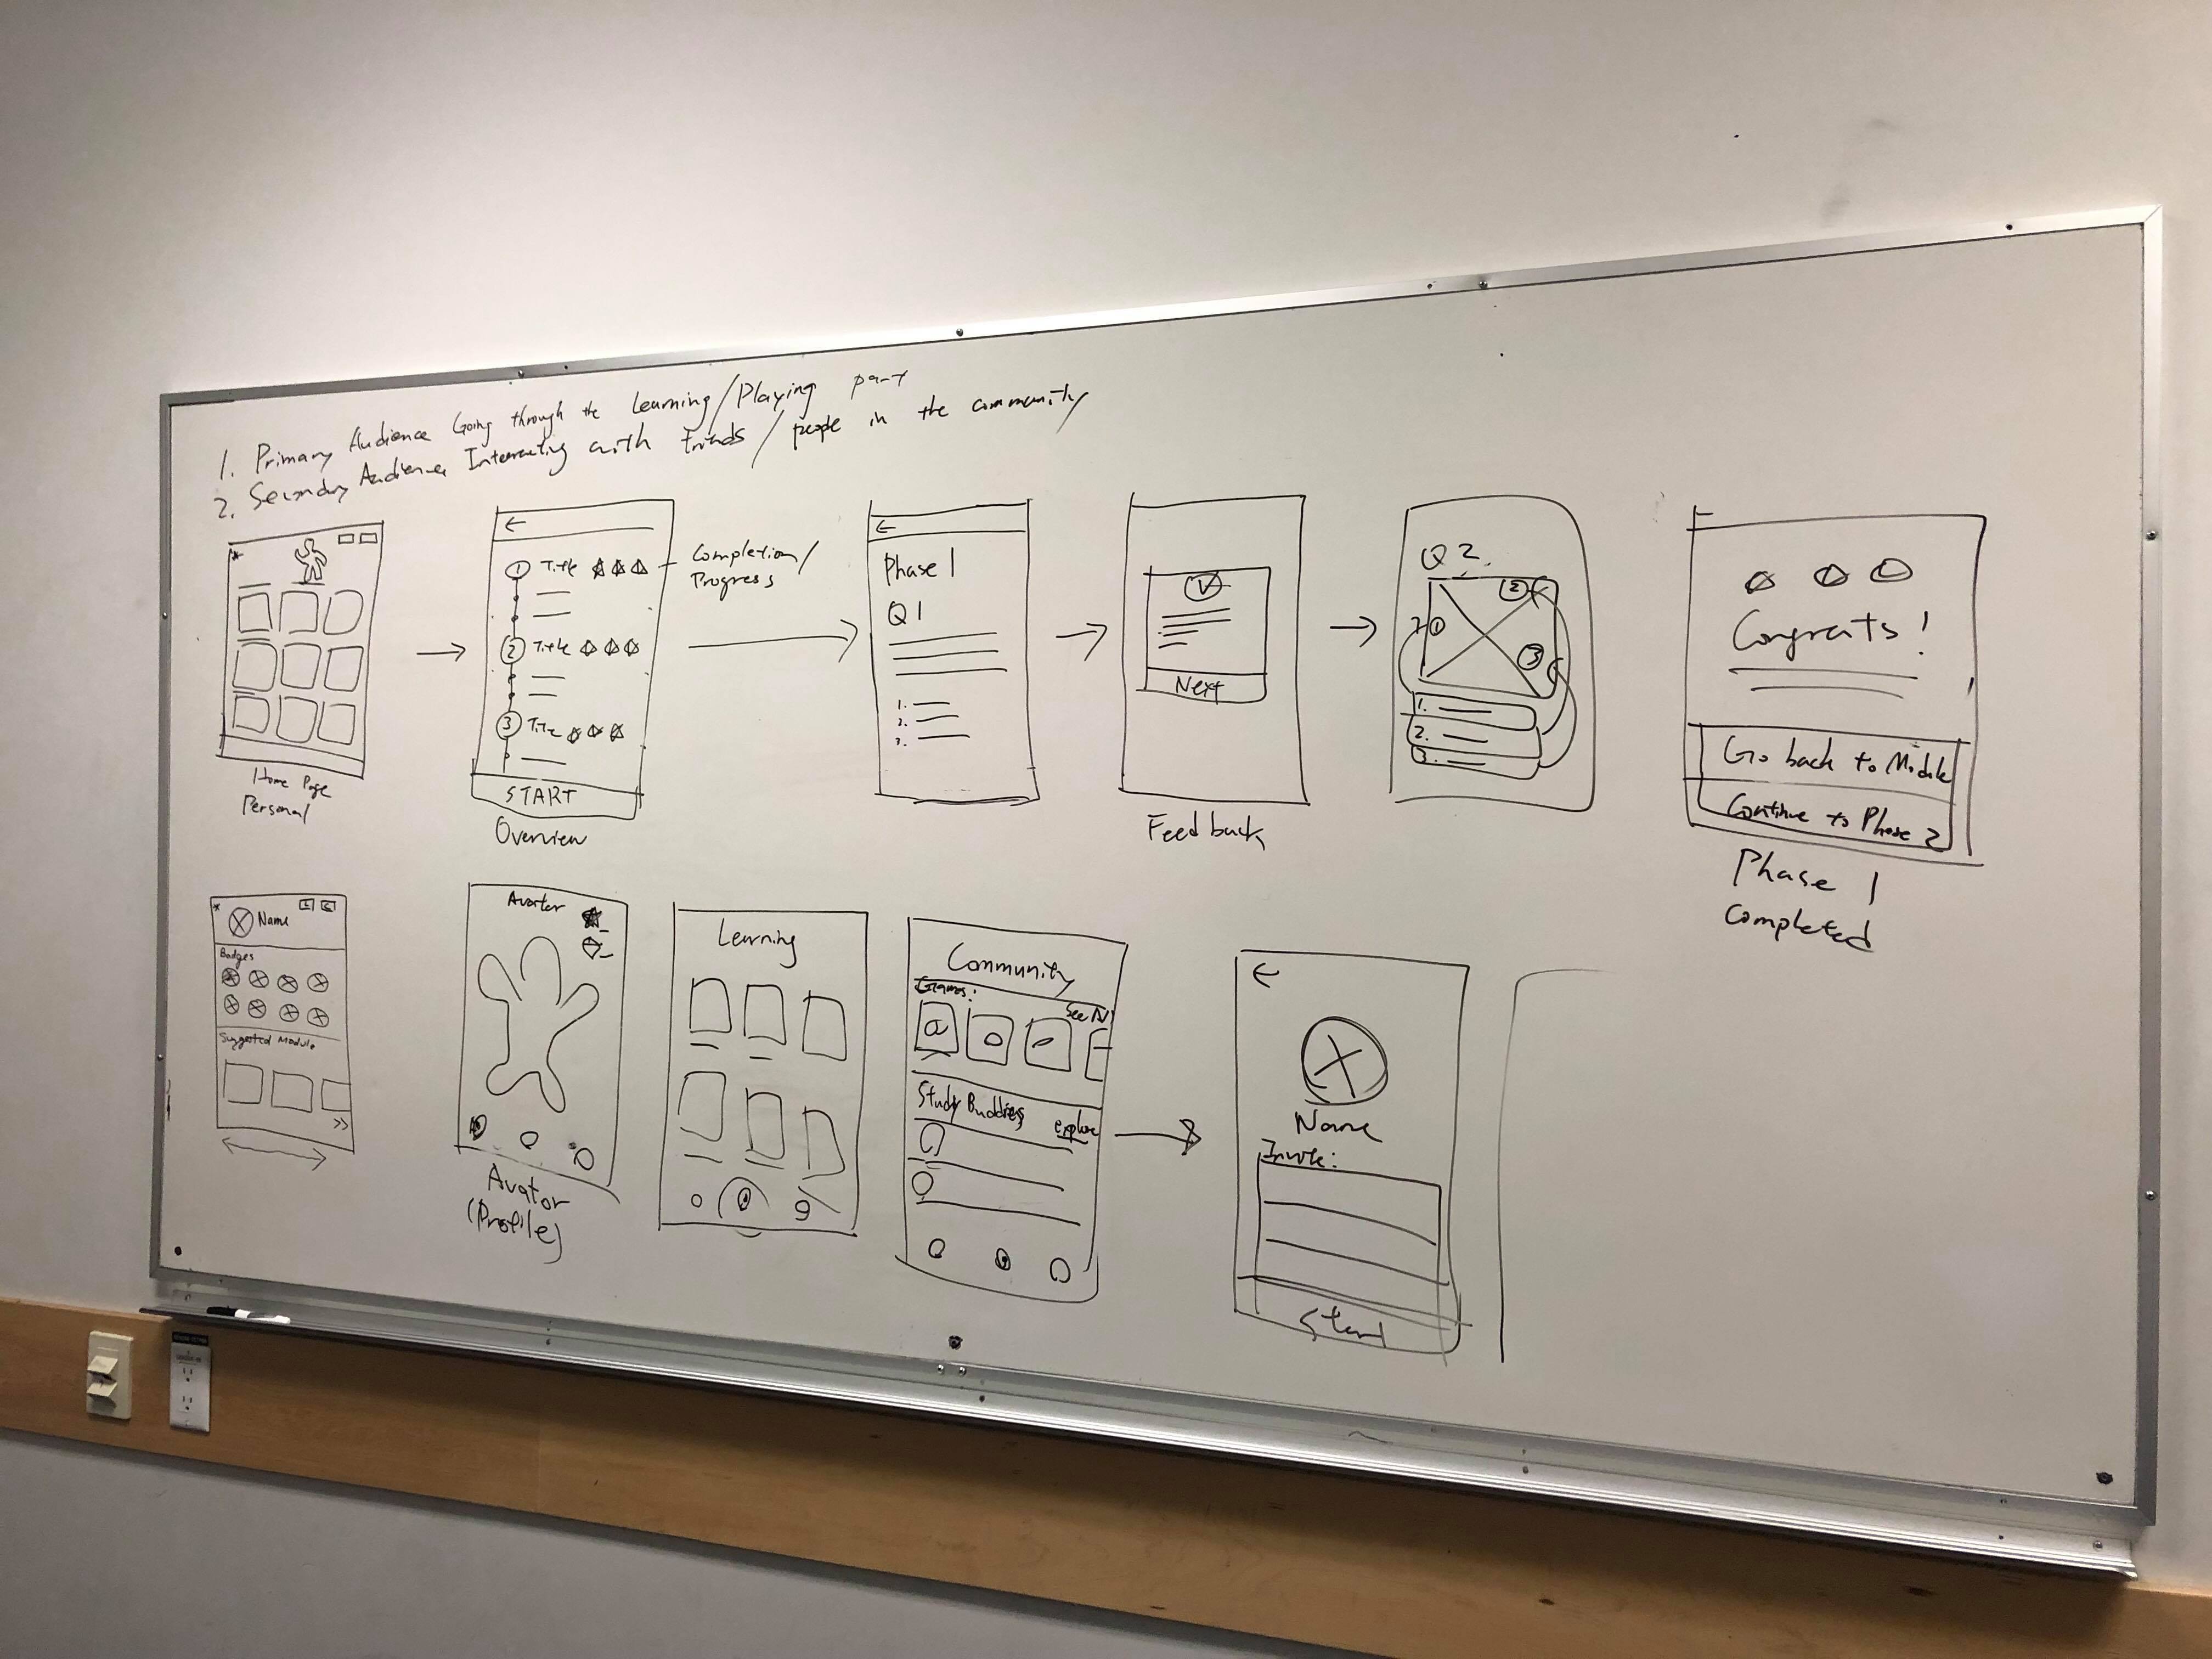 1. Primary Audience Going through the Learning/Playing part
2. Secondary Audience Interacting with Friends/people in the community
1 Title
2 Title
3 Title
START
Overview
Completion/
Progress
Home Page
Personal
Phase 1
Q1
1.
2.
3.
Next
Feedback
Q2.
1
2
3
1.
2.
3.
Congrats!
Go back to Module
Continue to Phase 2
Phase 1
completed
Name
Badges
Suggested Module
>>
Avatar
Avator
(Profile)
Learning
Community
Games:
See
Study Buddies
explore
Name
Invite: